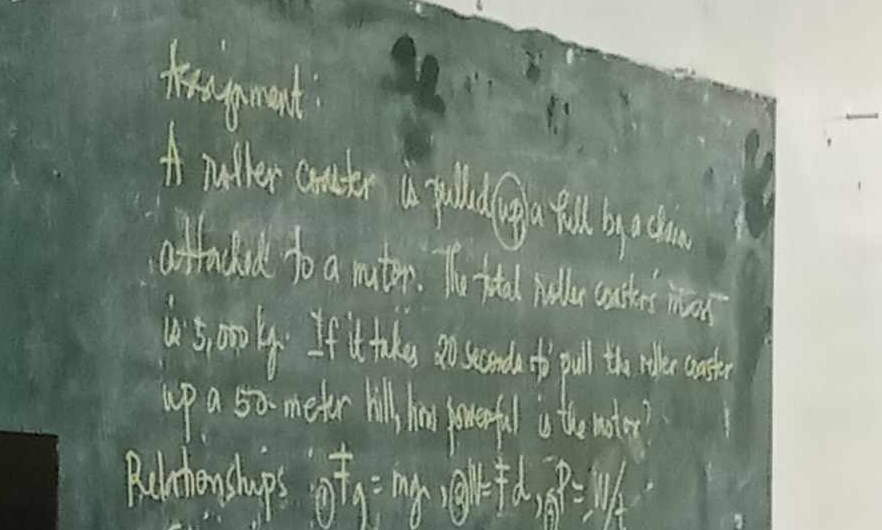 Assignment:
A roller coaster is pulled up a hill by a chain
attached to a motor. The total roller coaster's mass
is 5,000 kg. If it takes 20 seconds to pull the roller coaster
up a 50-meter hill, how powerful is the motor?
Relationships ① Fg = mg, ② W = Fd, ③ P = W/t